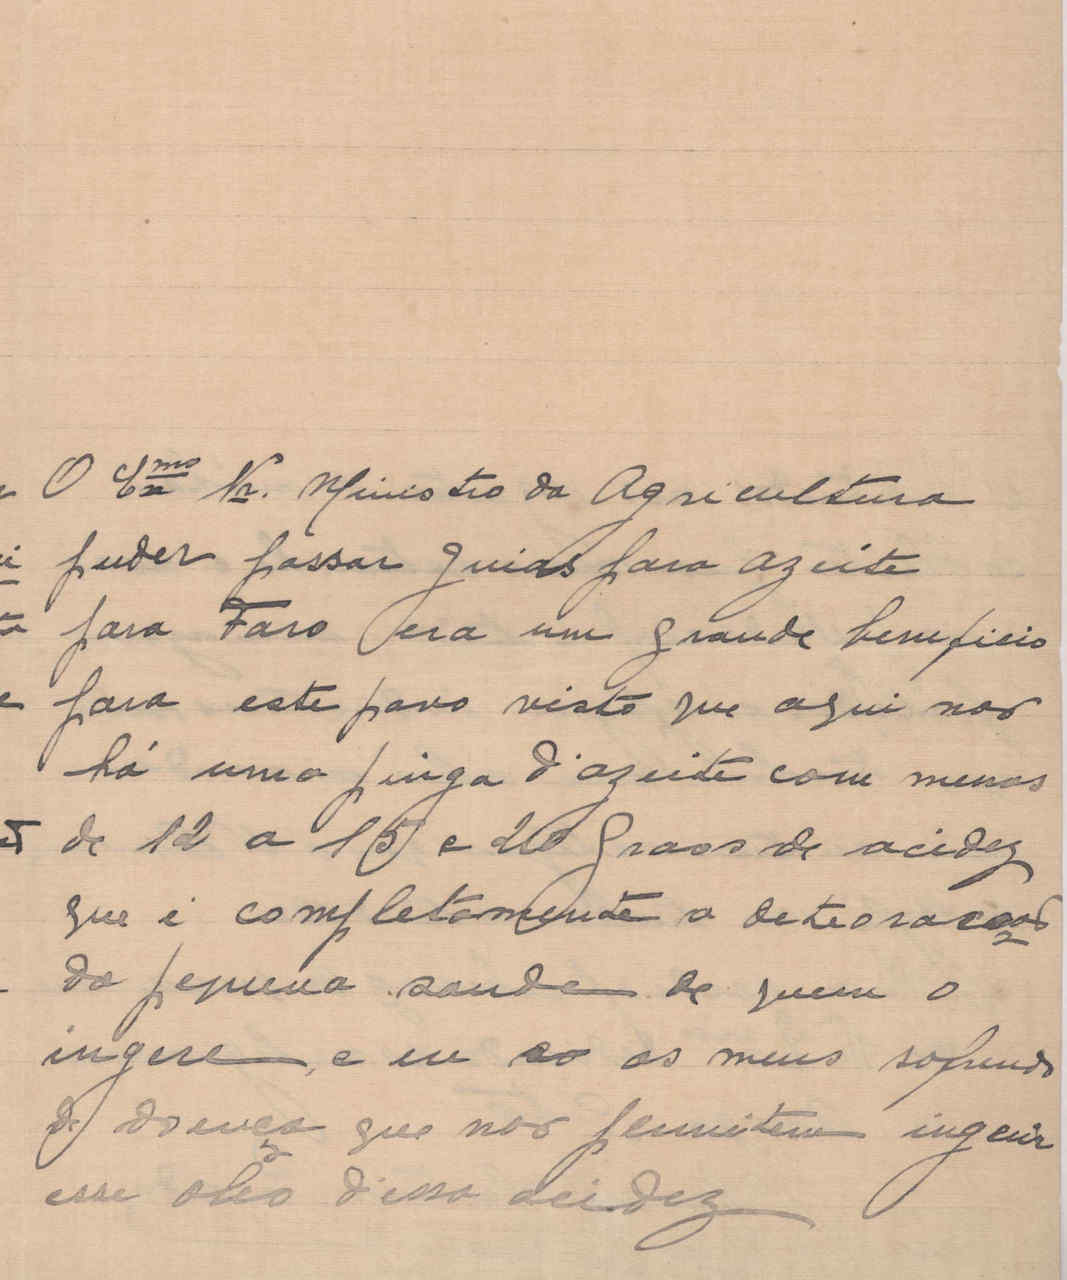 O Exmo Sr. Ministro da Agricultura
puder passar guias para azeite
para Faro era um grande beneficio
para este povo visto que aqui nao
há uma pinga d'azeite com menos
de 12 a 15 e 20 graos de acidez
que é completamente a deteoraçao
da pequena saude de quem o
ingere, e eu os meus sofrendo
de doença que nao permitem ingerir
esse oleo d'essa acidez